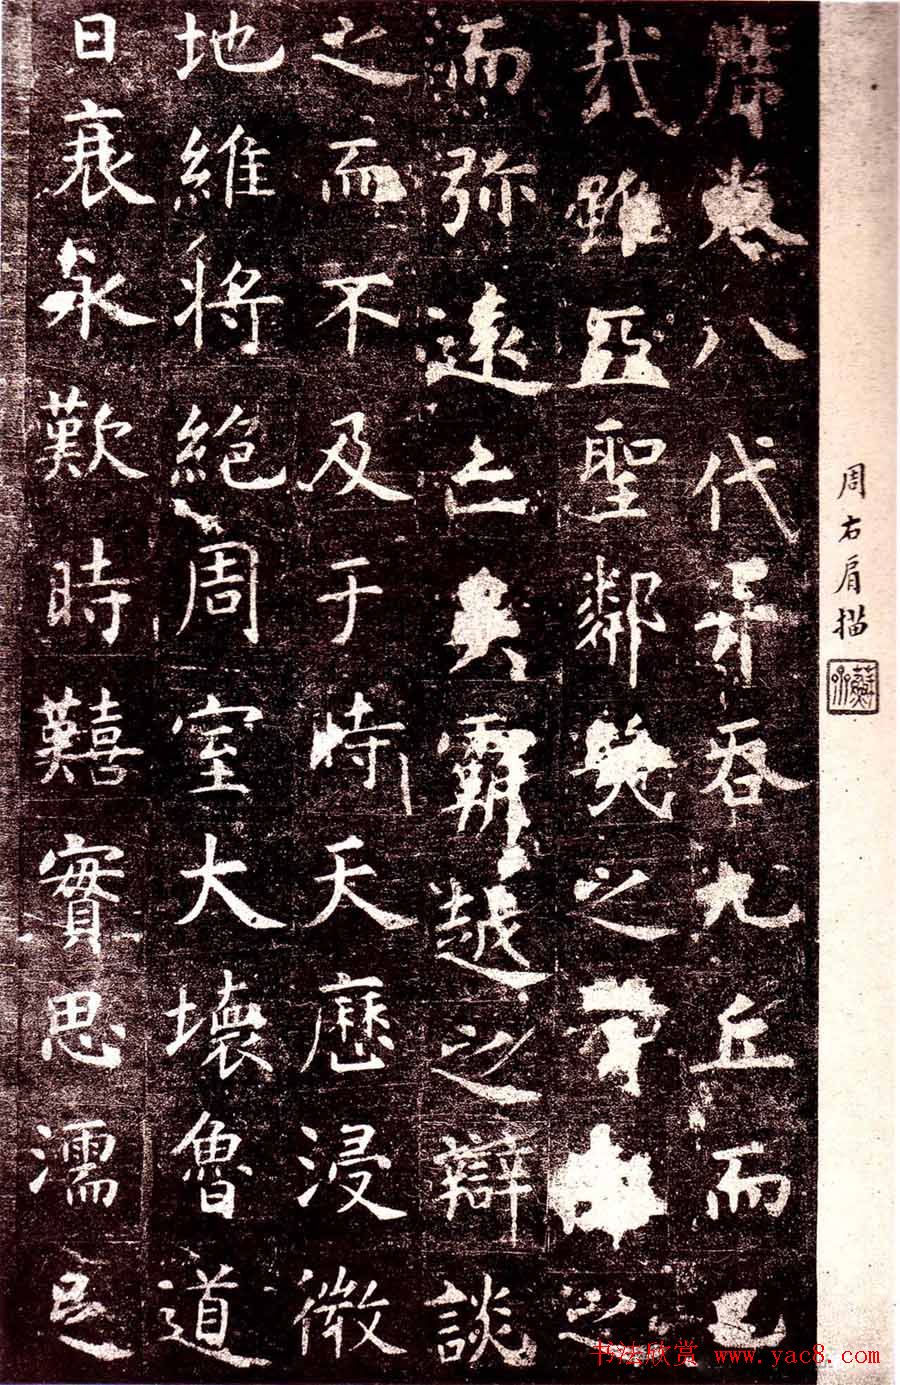 周右肩描
席卷八代并吞九丘而已
哉雖亞聖鄰幾之智仰之
而弥遠亡吳霸越之辯談
之而不及于時天歷浸微
地維將絕周室大壞魯道
日衰永歎時囏實思濡足
书法欣赏 www.yac8.com